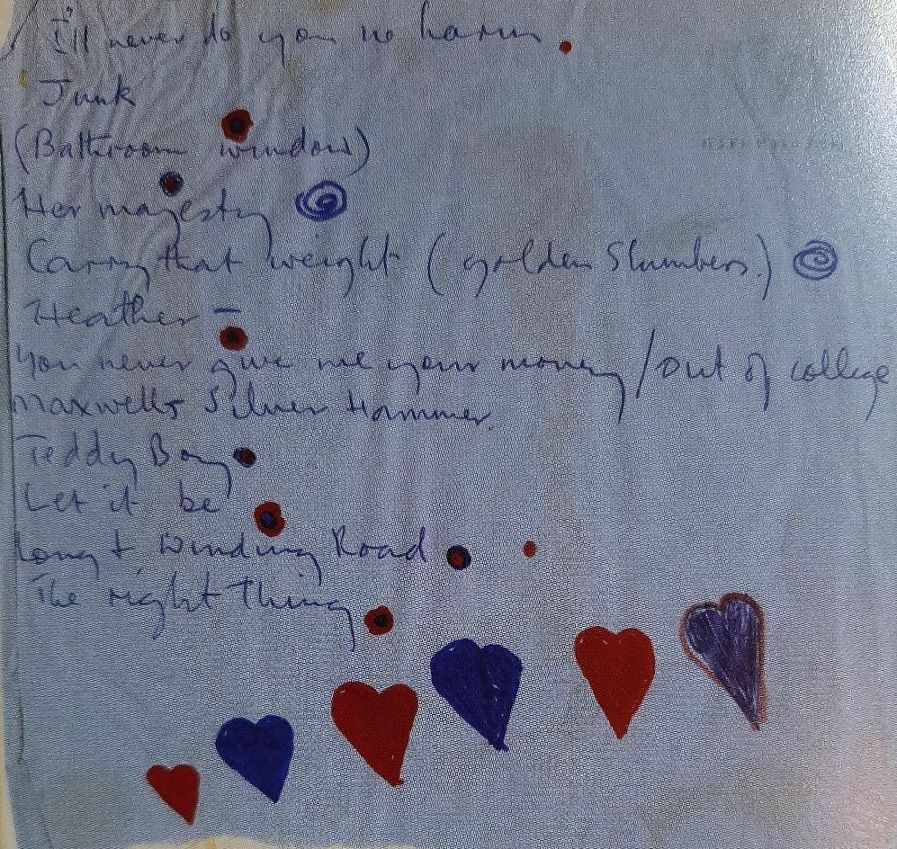 I'll never do you no harm.
Junk
(Bathroom window)
Her majesty
Carry that weight (golden Slumbers.)
Heather –
You never give me your money / out of college
maxwells Silver Hammer.
Teddy Boy
Let it be
Long & Winding Road
The right thing